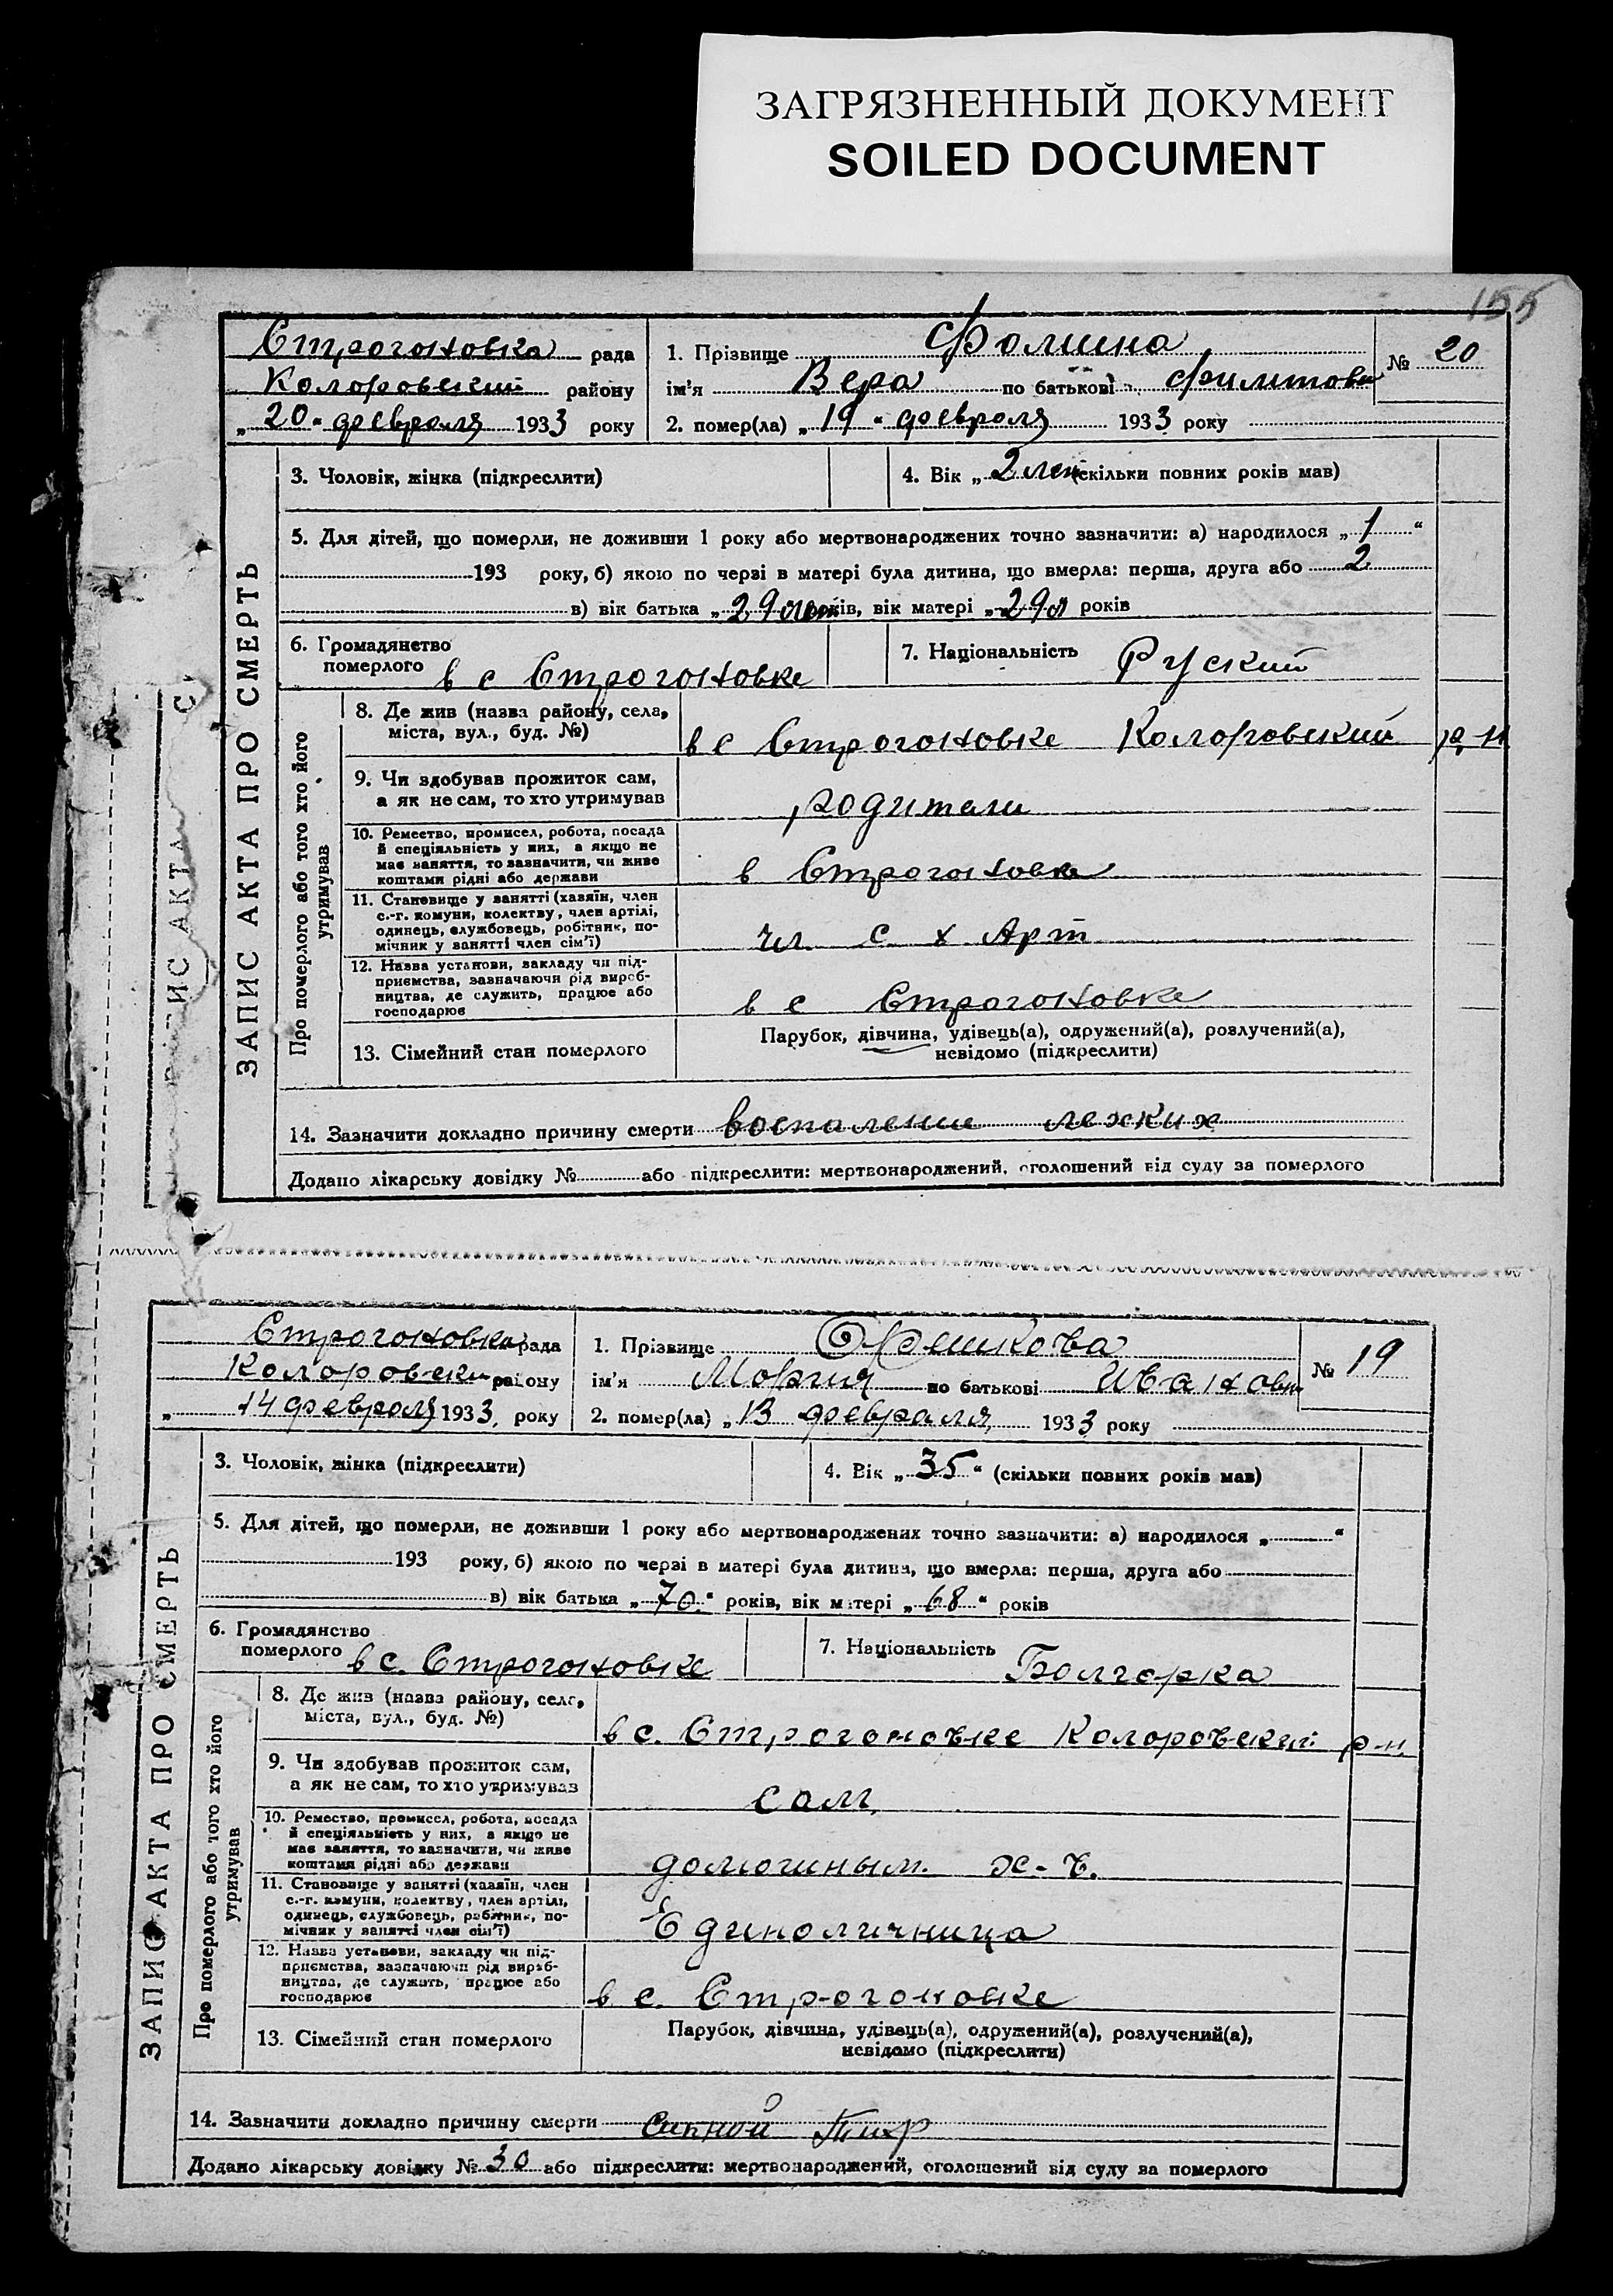 ЗАГРЯЗНЕННЫЙ ДОКУМЕНТ
SOILED DOCUMENT
155
Строгоновка рада
Колоровский району
„ 20 “ февраля 1933 року
1. Прізвище Фомина
№ 20
ім'я Вера по батькові
2. помер(ла) „ 19 “ февраля 1933 року
ЗАПИС АКТА ПРО СМЕРТЬ
ЗАПИС АКТА
3. Чоловік, жінка (підкреслити)
4. Вік „ 2 лет (скільки повних років мав)
5. Для дітей, що померли, не доживши 1 року або мертвонароджених точно зазначити: а) народилося „ 1 “
193 року, б) якою по черзі в матері була дитина, що вмерла: перша, друга або 2
в) вік батька „ 29 лет років, вік матері „ 29 л років
6. Громадянство
померлого в с Строгоновке
7. Національність Руский
Про померлого або того хто його
утримував
8. Де жив (назва району, села,
міста, вул., буд. №)
в с Строгоновке Колоровский р-н
9. Чи здобував прожиток сам,
а як не сам, то хто утримував
родители
10. Ремество, промисел, робота, посада
й спеціяльність у них, а якщо не
має заняття, то зазначити, чи живе
коштами рідні або держави
в Строгоновке
11. Становище у занятті (хазяїн, член
с.-г. комуни, колективу, член артілі,
одинець, службовець, робітник, по-
мічник у занятті член сім'ї)
чл с х Арт
12. Назва установи, закладу чи під-
приємства, зазначаючи рід вироб-
ництва, де служить, працює або
господарює
в с Строгоновке
13. Сімейний стан померлого
Парубок, дівчина, удівець(а), одружений(а), розлучений(а),
невідомо (підкреслити)
14. Зазначити докладно причину смерти воспаление лежких
Додано лікарську довідку № або підкреслити: мертвонароджений, оголошений від суду за померлого
Строгоновка рада
Колоровски району
„ 14 февраля 1933 року
1. Прізвище Орешкова
№ 19
ім'я Мария по батькові Ивановн
2. помер(ла) „ 13 февраля 1933 року
ЗАПИС АКТА ПРО СМЕРТЬ
3. Чоловік, жінка (підкреслити)
4. Вік „ 35 “ (скільки повних років мав)
5. Для дітей, що померли, не доживши 1 року або мертвонароджених точно зазначити: а) народилося „ “
193 року, б) якою по черзі в матері була дитина, що вмерла: перша, друга або
в) вік батька „ 70 “ років, вік матері „ 68 “ років
6. Громадянство
померлого в с. Строгоновке
7. Національність Болгорка
Про померлого або того хто його
утримував
8. Де жив (назва району, села,
міста, вул., буд. №)
в с. Строгоновке Колоровский р-н.
9. Чи здобував прожиток сам,
а як не сам, то хто утримував
сам
10. Ремество, промисел, робота, посада
й спеціяльність у них, а якщо не
має заняття, то зазначити, чи живе
коштами рідні або держави
х-в.
11. Становище у занятті (хазяїн, член
с.-г. комуни, колективу, член артілі,
одинець, службовець, робітник, по-
мічник у занятті член сім'ї)
Единоличница
12. Назва установи, закладу чи під-
приємства, зазначаючи рід вироб-
ництва, де служить, працює або
господарює
в с. Строгоновке
13. Сімейний стан померлого
Парубок, дівчина, удівець(а), одружений(а), розлучений(а),
невідомо (підкреслити)
14. Зазначити докладно причину смерти Сипной Тиф
Додано лікарську довідку № 30 або підкреслити: мертвонароджений, оголошений від суду за померлого